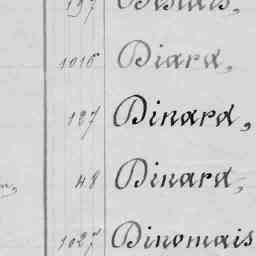 1016 Diard,
127 Dinard,
48 Dinard,
1027 Dinomais